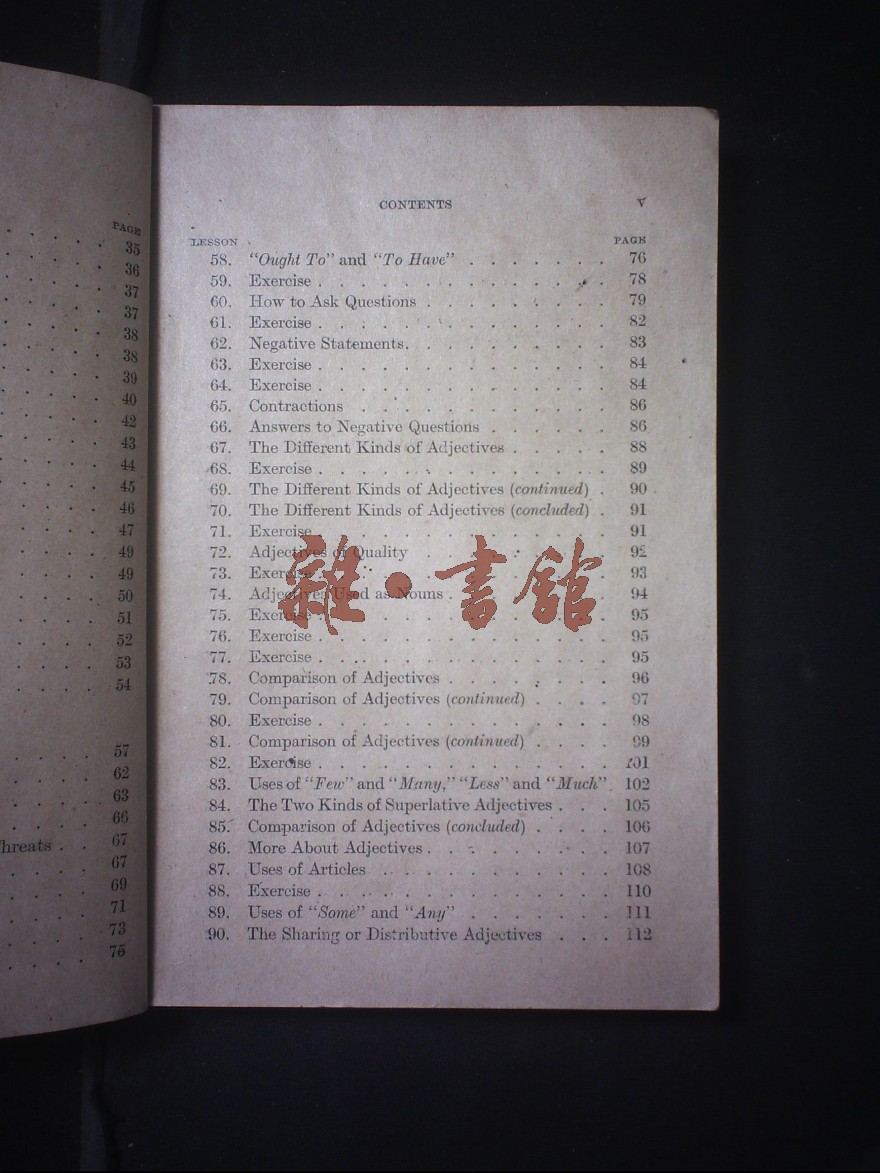 PAGE
35
36
37
37
38
38
39
40
42
43
44
45
46
47
49
49
50
51
52
53
54
57
62
63
66
hreats . . 67
67
69
71
73
75
CONTENTS V
LESSON PAGE
58. "Ought To" and "To Have" . . . . . . . 76
59. Exercise . . . . . . . . . . . . . . 78
60. How to Ask Questions . . . . . . . . . 79
61. Exercise . . . . . . . . . . . . . . 82
62. Negative Statements. . . . . . . . . . 83
63. Exercise . . . . . . . . . . . . . . 84
64. Exercise . . . . . . . . . . . . . . 84
65. Contractions . . . . . . . . . . . . 86
66. Answers to Negative Questions . . . . . . 86
67. The Different Kinds of Adjectives . . . . . 88
68. Exercise . . . . . . . . . . . . . . 89
69. The Different Kinds of Adjectives (continued) . 90
70. The Different Kinds of Adjectives (concluded) . 91
71. Exercise . . . . . . . . . . . . . . 91
72. Adjectives of Quality . . . . . . . . . 92
73. Exercise . . . . . . . . . . . . . . 93
74. Adjectives Used as Nouns . . . . . . . . 94
75. Exercise . . . . . . . . . . . . . . 95
76. Exercise . . . . . . . . . . . . . . 95
77. Exercise . . . . . . . . . . . . . . 95
78. Comparison of Adjectives . . . . . . . . 96
79. Comparison of Adjectives (continued) . . . . 97
80. Exercise . . . . . . . . . . . . . . 98
81. Comparison of Adjectives (continued) . . . . 99
82. Exercise . . . . . . . . . . . . . . 101
83. Uses of "Few" and "Many," "Less" and "Much" . 102
84. The Two Kinds of Superlative Adjectives . . . 105
85. Comparison of Adjectives (concluded) . . . . 106
86. More About Adjectives . . . . . . . . . 107
87. Uses of Articles . . . . . . . . . . . 108
88. Exercise . . . . . . . . . . . . . . 110
89. Uses of "Some" and "Any" . . . . . . . 111
90. The Sharing or Distributive Adjectives . . . 112
雜·書館